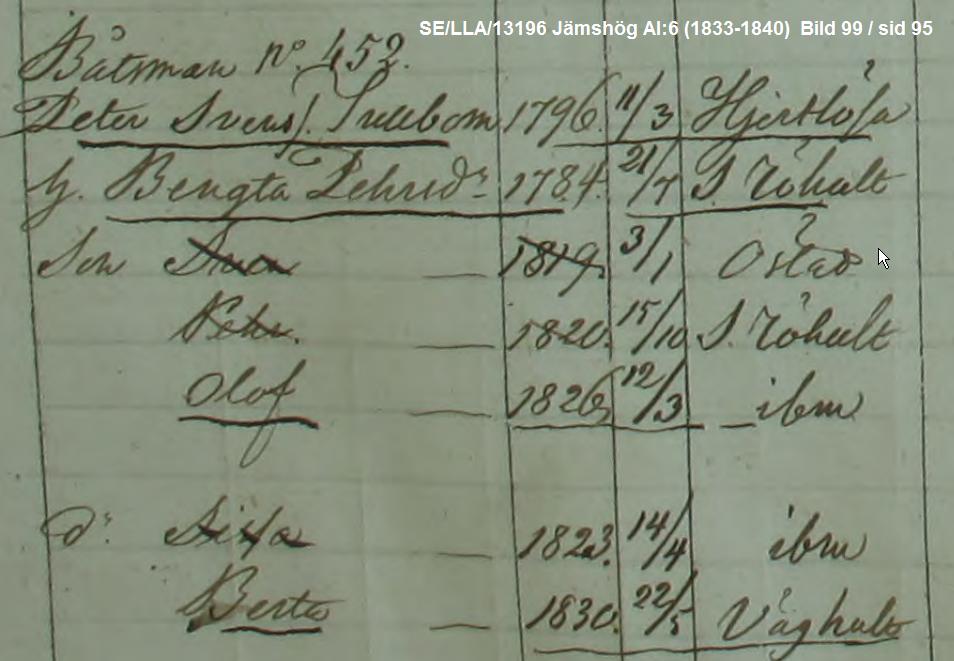 SE/LLA/13196 Jämshög AI:6 (1833-1840) Bild 99 / sid 95
Båtsman No. 452.
Peter Svens/. 1796. 11/3
h. Bengta Pehrsdr 1784. 21/7 S. Röhult
Son Sven — 1819. 3/1
Pehr. — 1820. 15/10 S. Röhult
Olof — 1826 12/3 — ibm
dr Sissa — 1823. 14/4 ibm
Berta — 1830. 22/5